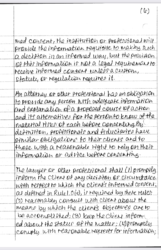 (6)
med consent, the institution or professional must
provide the information requisite to making such
a decision in an informed way, but the provision
of that information is not a legal requirement to
receive informed consent unless a custom,
statute, or regulation requires it.
An attorney or other professional has an obligation
to provide any person with adequate information
and explanation of a proposed course of action
and its alternatives for the person to know of the
material risks of each before consenting. By
definition, professionals and fiduciaries have
similar obligations to their clients and to
those with a reasonable right to rely on their
information or advice before consenting.
The lawyer or other professional shall (1) promptly
inform the client of any decision or circumstance
with respect to which the client's informed consent,
as defined in Rule 1.0(e), is required by these rules
(2) reasonably consult with client about the
means by which the client's objectives are to
be accomplished; (3) keep the client inform-
ed about the status of the matter; (4) promptly
comply with reasonable requests for information;